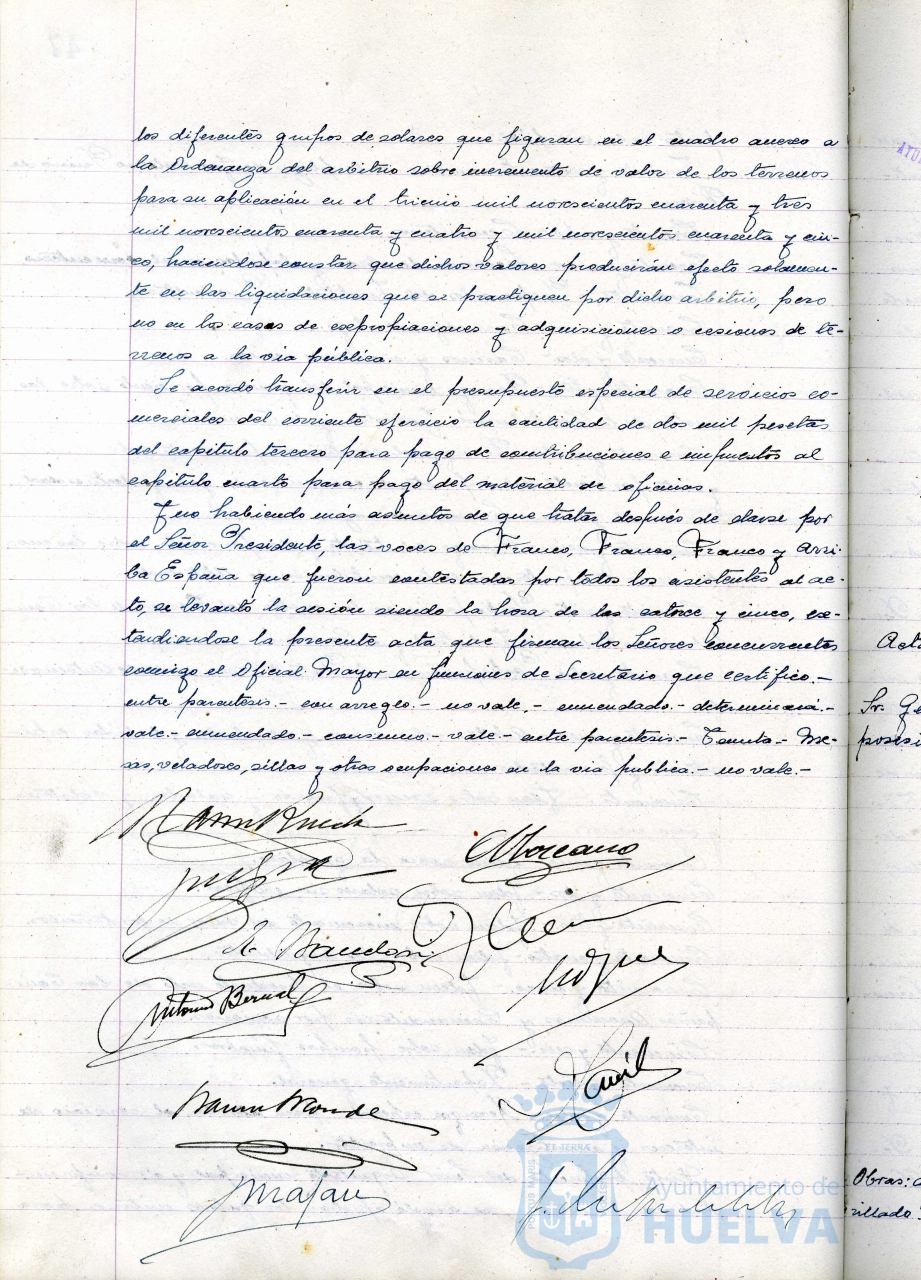 los diferentes grupos de solares que figuran en el cuadro anexo a
la Ordenanza del arbitrio sobre incremento de valor de los terrenos
para su aplicación en el trienio mil novescientos cuarenta y tres
mil novescientos cuarenta y cuatro y mil novescientos cuarenta y cin-
co, haciendose constar que dichos valores producirán efecto solamen-
te en las liquidaciones que se practiquen por dicho arbitrio, pero
no en los casos de expropiaciones y adquisiciones o cesiones de te-
rrenos a la via pública.
Se acordó transferir en el presupuesto especial de servicios co-
merciales del corriente ejercicio la cantidad de dos mil pesetas
del capitulo tercero para pago de contribuciones e impuestos al
capitulo cuarto para pago del material de oficinas.
Y no habiendo más asuntos de que tratar después de darse por
el Señor Presidente, las voces de Franco, Franco, Franco y Arri-
ba España que fueron contestadas por todos los asistentes al ac-
to, se levantó la sesión siendo la hora de las catorce y cinco, ex-
tendiendose la presente acta que firman los Señores concurrentes
conmigo el Oficial Mayor en funciones de Secretario que certifico.-
entre parentesis.- con arreglo.- no vale.- enmendado.- determinará.-
vale.- enmendado.- consumo.- vale.- entre parentesis.- Me-
sas, veladores, sillas y otras ocupaciones en la via publica.- no vale.-
Antonio Bernal
Ayuntamiento de
HUELVA
Acta
Sr. Ge
posesi
Obras:
rillado